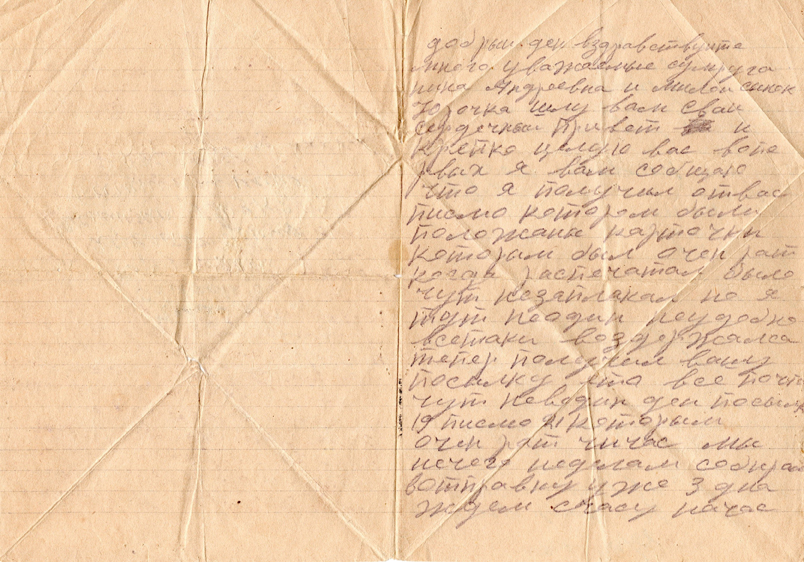 добрый ден вздравствуйте
много уважаемые супруга
нина Андреевна и милой синок
Юрочка шлу вам свой
сердечный привет и
крепко целую вас вопе
рвых я вам сообщаю
что я получил отвас
писмо котором были
положаны карточки
которым был очен рат
когда распечатал было
чут незаплакал но я
тут неодин неудобно
всетаки воздержался
тепер получил вашу
посылку ето всё почти
чут неводин ден посылк
19 писмо 21 которым
очен рат чичас мы
нечего неделам собирам
вотправку уже 3 дня
ждем счасу начас